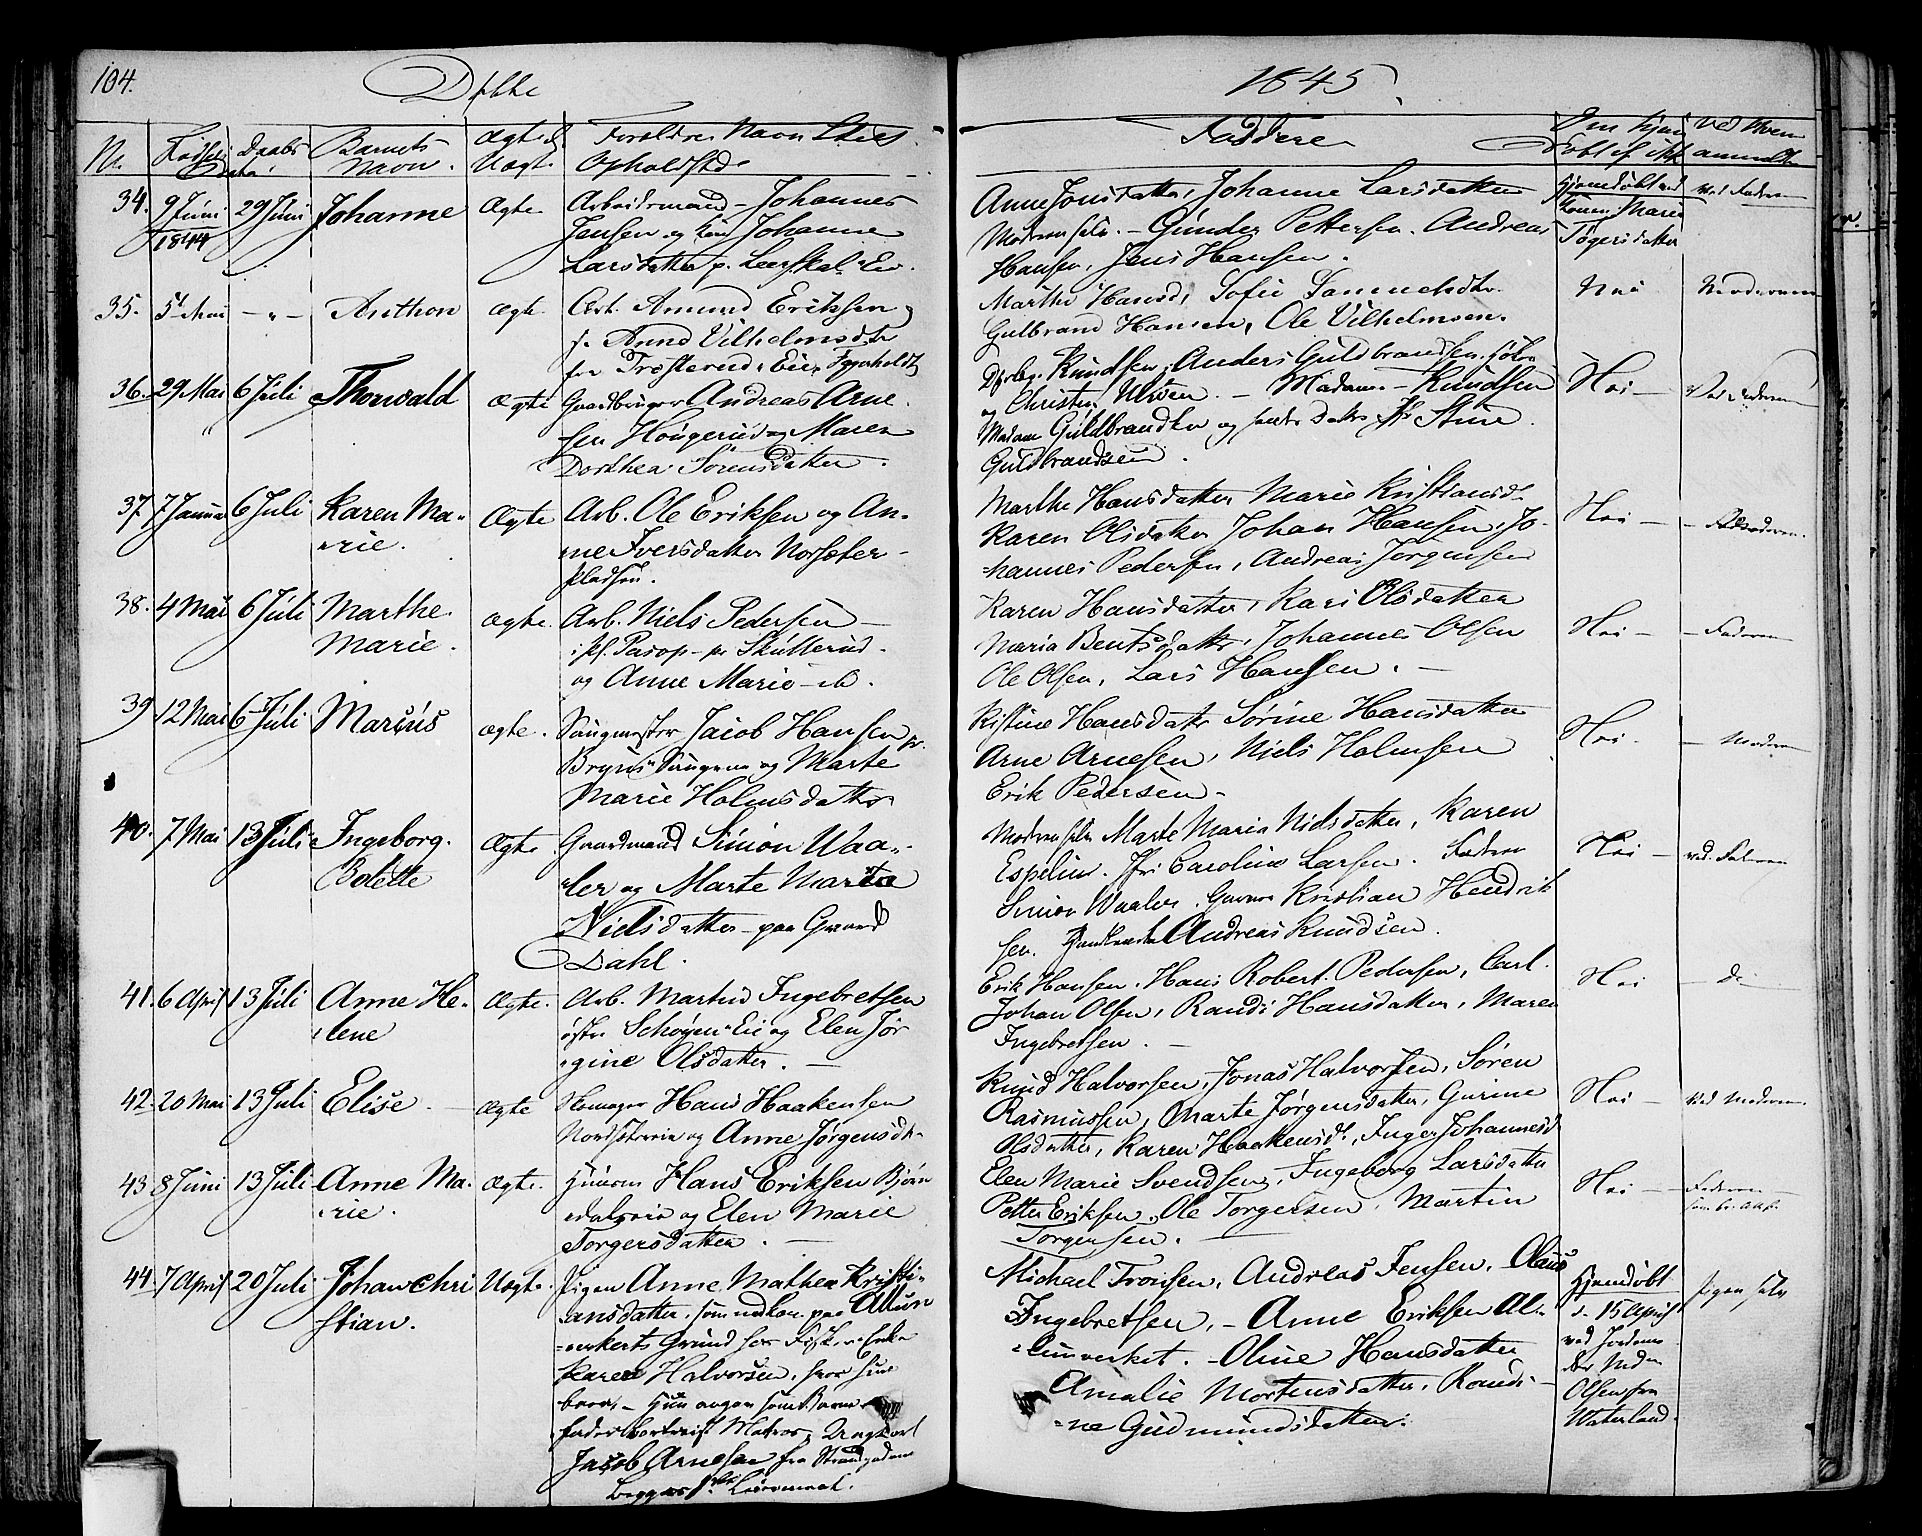 104.
Døbte
1845.
No. Fødsels Daabs Data Barnets Navn. Ægte el. Uægte Forældres Navn Stand Opholdsted
Faddere Om hjemdøbt el. ikke Ved Hvem anmeldt
34. 9 Juni 1844 29 Juni Johanne Ægte. Arbeidsmand Johannes
Jensen og Johanne
Larsdatter p. Eie.
Anne Jonsdatter, Johanne Larsdatter
Moderen selv. - Gunder Pettersen. Andreas
Hansen, Jens Hansen.
Hjemdøbt ved
Konen Marie
Tøgersdatter
ved Faderen
35. 5t Mai - " - Anthon ægte. Arb. Amund Eriksen og
Anne Vilhelmsdtr
Eie,
Marthe Hansd, Sofie
Gulbrand Hansen, Ole Vilhelmsen.
Nei Moderen
36. 29 Mai 6 Juli Thorvald ægte Gaardbruger Andreas Arne-
sen Hougerud og Maren
Dorthea Sørensdatter.
Knudsen, Anders Guldbrandsen
og Christen Nilsen. - Madam - Knudsen
Madam Guldbrandsen og Stine
Guldbrandsen.
Nei - ved Faderen
37. 7 Januar 6 Juli Karen Ma-
rie. Ægte Arb. Ole Eriksen og An-
ne Iversdatter
pladsen.
Marthe Hansdatter Marie Kristiansd.
Karen Olsdatter Johan Hansen, Jo-
hannes Pedersen, Andreas Jørgensen
Nei - - Faderen.
38. 4 Mai 6 Juli Marthe
Marie. ægte. Arb. Niels Pedersen -
Skullerud.
og Anne Marie
Karen Hansdatter, Kari Olsdatter
Maria Bentsdatter, Johannes Olsen
Ole Olsen, Lars Hansen. -
Nei - - Faderen
39 12 Mai 6 Juli Marius ægte. Saugmester Jacob Hansen pr.
Bryns Saugene og Marte
Marie Holmsdatter
Kistine Hansdatr Sørine Hansdatter
Arne Arnesen, Niels Holmsen
Erik Pedersen -
Nei. - Moderen
40. 7 Mai 13 Juli Ingeborg
Bolette Ægte Gaardmand Simon Waa-
ler og Marte Maria
Nielsdatter - paa Gaard
Dahl.
Moderen selv Marte Maria Nielsdatter, Karen
Espelin. Jfr. Caroline Larsen. Faderen
Simon Waaler. Kristian Hendrik
sen. Andreas Knudsen.
Nei - ved. Faderen
41. 6 April 13 Juli Anne He-
lene Ægte. Arb. Martin Ingebretsen
østre Schøyen Eie og Elen Jør
gine Olsdatter. -
Erik Hansen, Hans Robert Pedersen, Carl
Johan Olsen, Randi Hansdatter, Maren
Ingebretsen. -
Nei - Do
42. 20 Mai 13 Juli Elise. - ægte Hans Haakensen
og Anne Jørgensdt-
Knud Halvorsen, Jonas Halvorsen, Søren
Rasmussen, Marte Jørgensdatter, Gurine
Olsdatter, Karen Haakensdt., Inger Johannesd
Nei - ved Moderen
43 8 Juni 13 Juli Anne Ma-
rie. Ægte. Huusm Hans Eriksen Bjørn
dalseie og Elen Marie
Torgersdatter. -
Elen Marie Svendsen, Ingeborg Larsdatter
Petter Eriksen, Ole Torgersen, Martin
Torgersen.
Nei - Faderen
44. 7 April 20 Juli Johan Chri
stian. Uægte. Pigen Anne Mathea Kristi-
ansdatter. som paa Allun
verkets Grund hos Enke
Karen Halvorsen, hvor hun
boer, - Hun angav som Barne
fader Matros
Jacob Arnesen fra
Michael Tronsen, Andreas Jensen, Olaus
Ingebretsen, - Anne Eriksen Al-
lunverket. - Oline Hansdatter
Amalie Mortensdatter, Randi-
ne Gudmundsdatter.
Hjemdøbt
d. 15 April
ved Jordemo
der
Olsen fra
Waterland.
Pigen selv